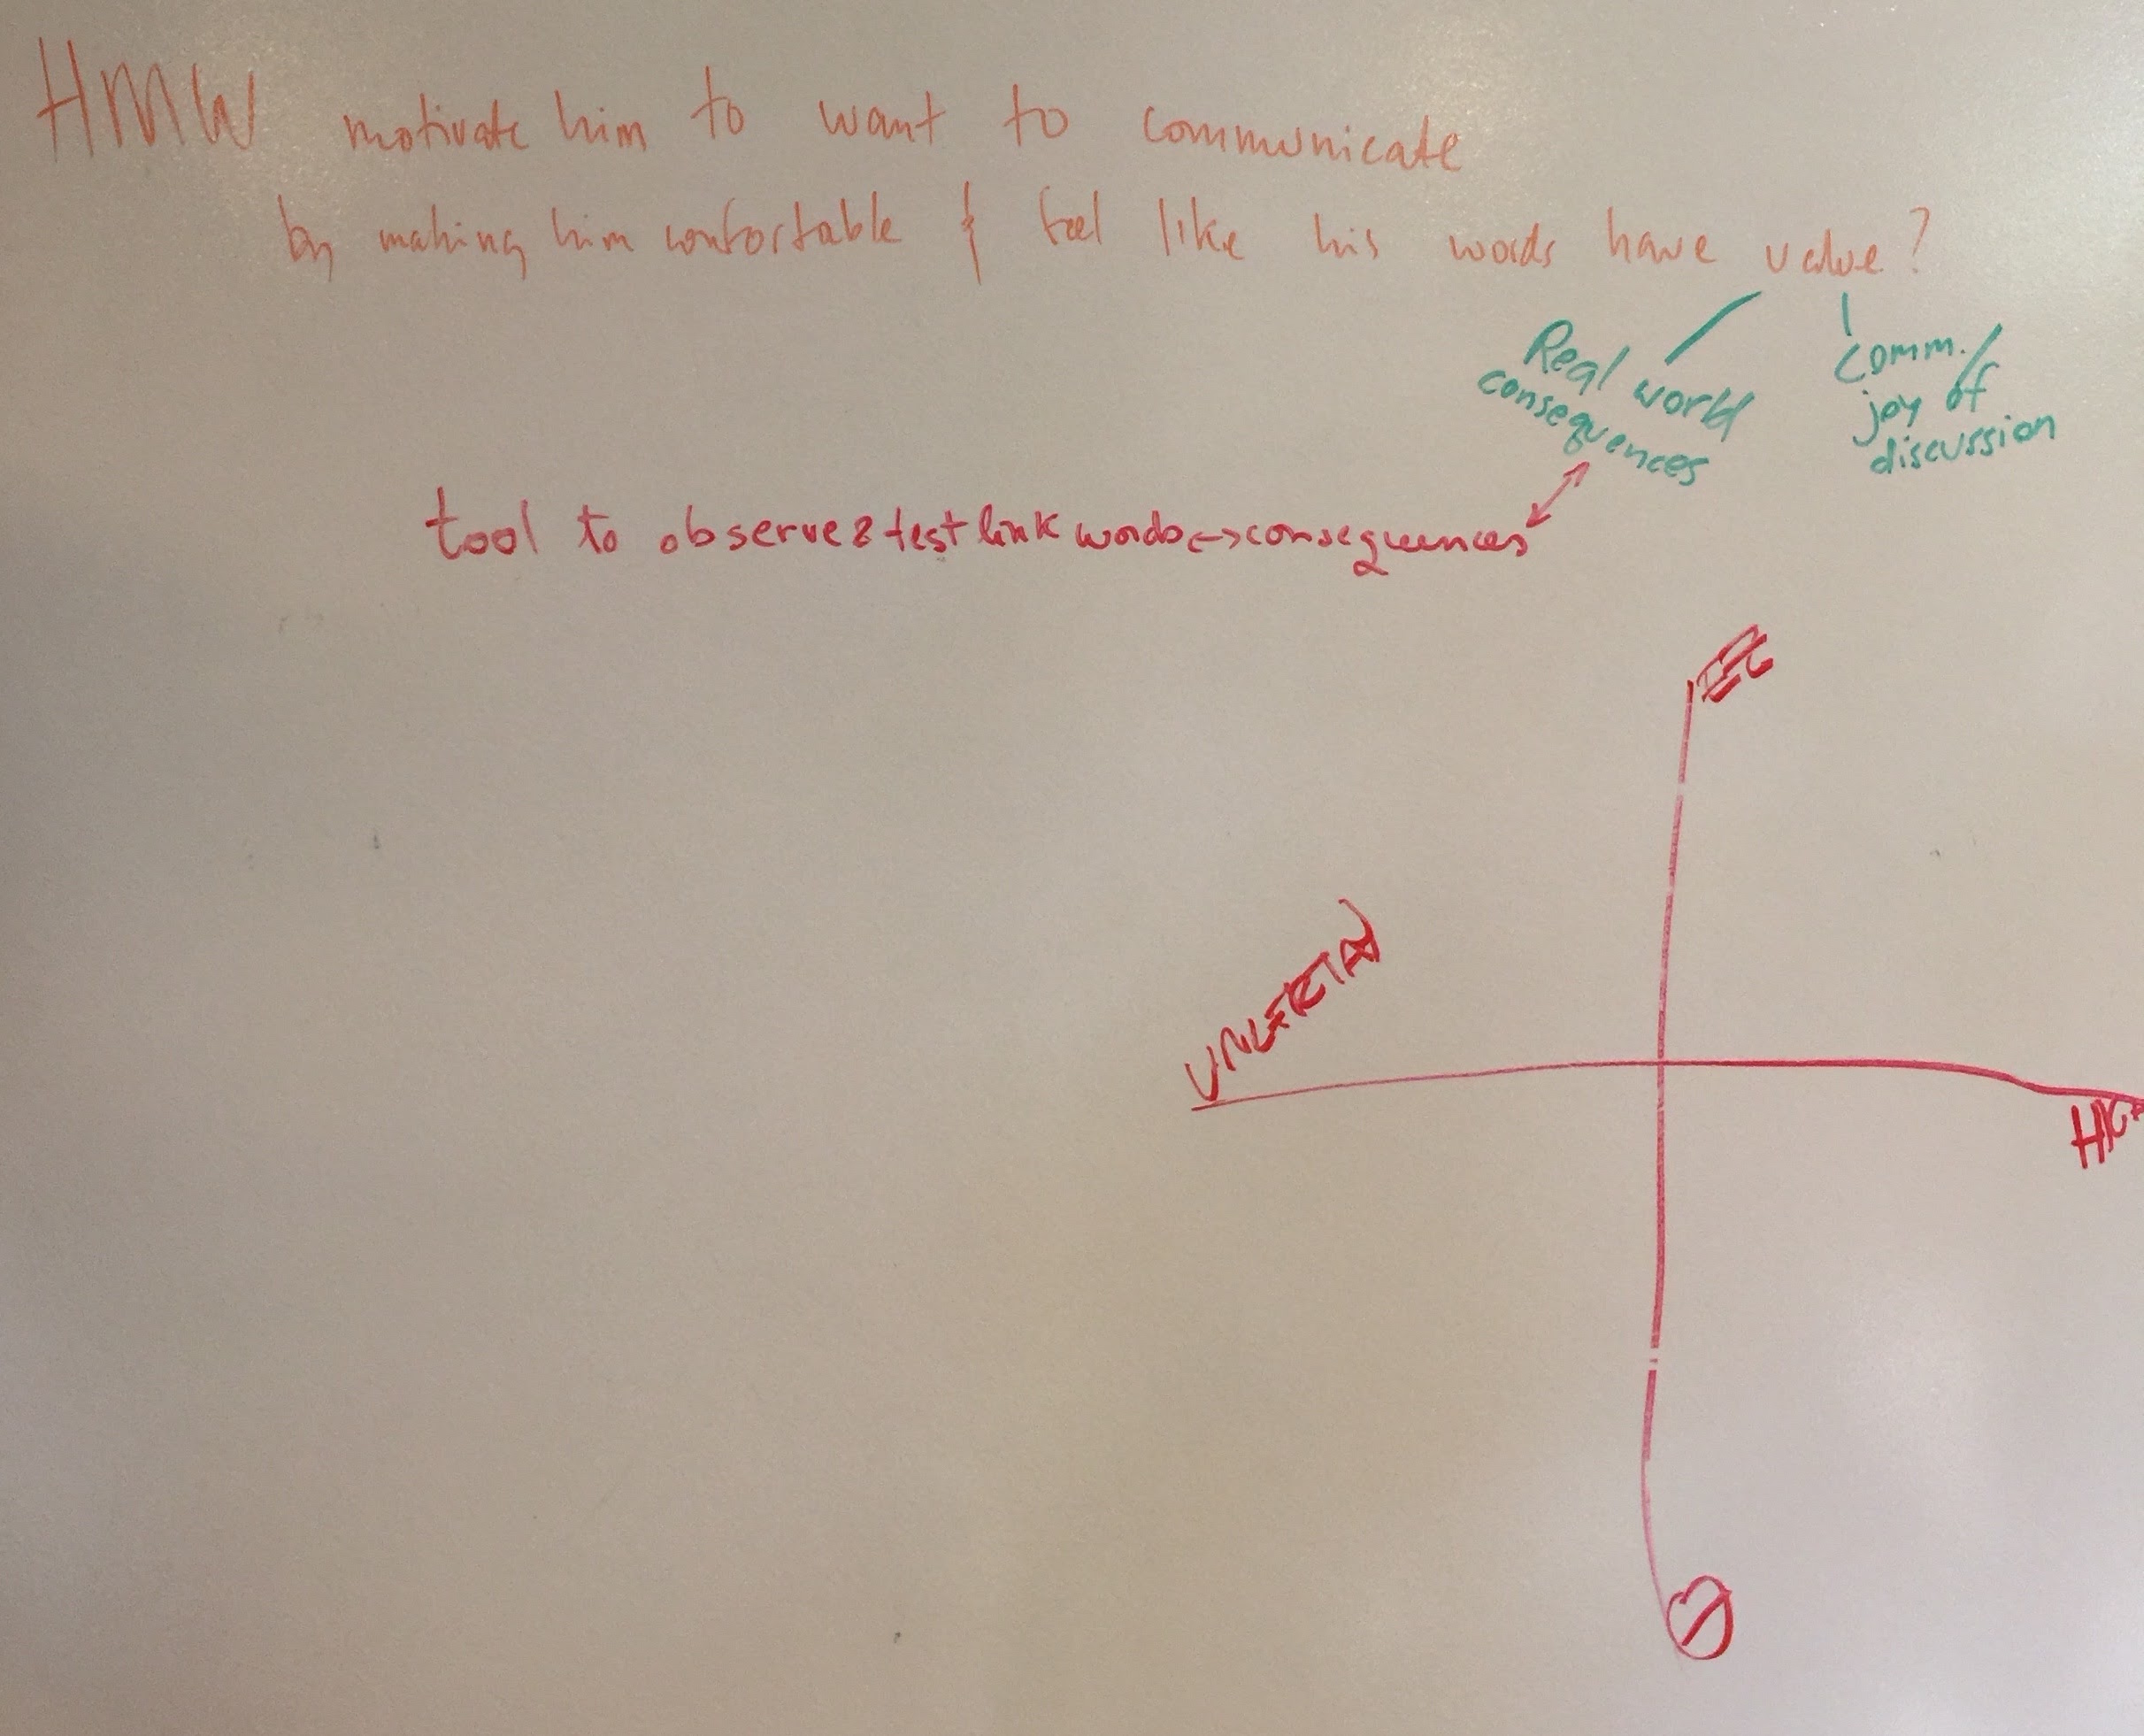 HMW motivate him to want to communicate
by making him confortable & feel like his words have value?
Real world
consequences
Comm./
joy of
discussion
tool to observe & test link words <-> consequences